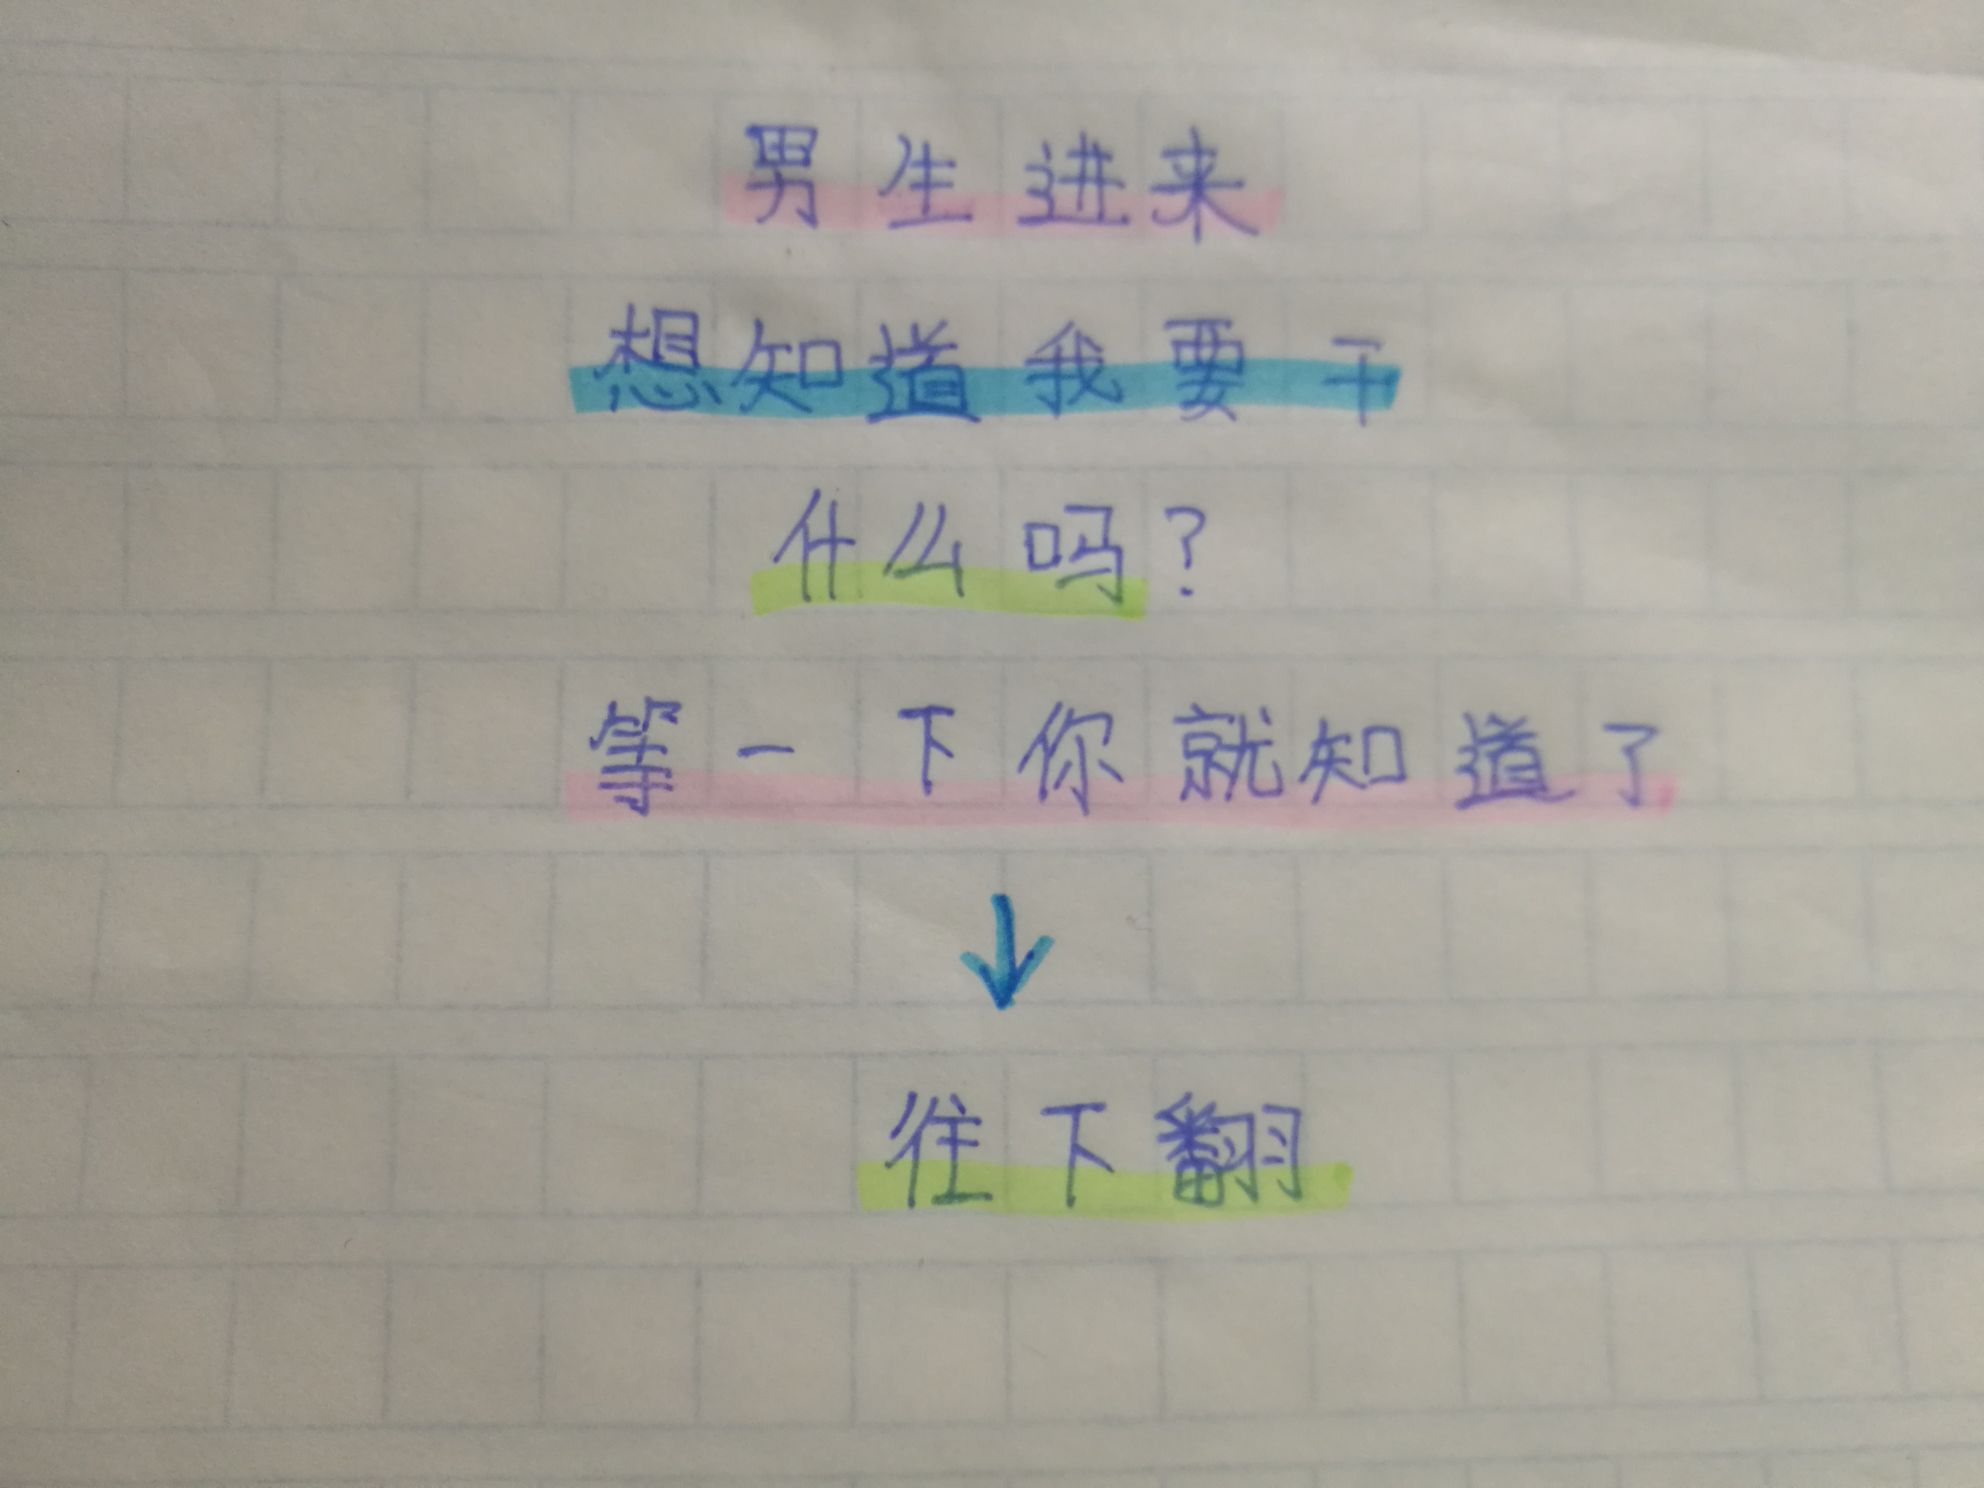 男生进来
想知道我要干
什么吗?
等一下你就知道了
↓
往下翻